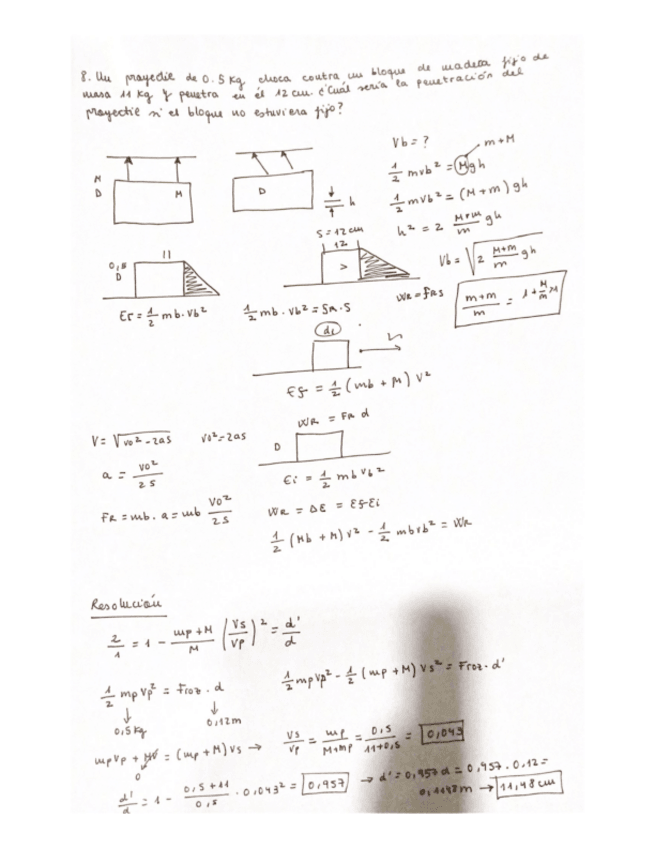 8. Un proyectil de 0.5 kg choca contra un bloque de madera fijo de
masa 11 kg y penetra en él 12 cm. ¿Cuál sería la penetración del
proyectil si el bloque no estuviera fijo?
Vb = ?
m+M
1/2 mvb² = Mgh
1/2 mvb² = (M+m) gh
h² = 2 M+m/m gh
Vb = √(2 M+m/m gh)
M
D
M
D
h
S = 12 cm
12
0,5
D
11
WR = FRS
m+m/m = 1 +
Er = 1/2 mb . Vb²
1/2 mb . Vb² = SR . S
di
Ef = 1/2 (mb + M) V²
WR = FR d
V = √(vo² - 2as)
vo² = 2as
D
a = vo²/2s
Ei = 1/2 mb Vb²
FR = mb . a = mb Vo²/2S
WR = ΔE = Ef-Ei
1/2 (Mb + M) V² - 1/2 mbvb² = WR
Resolución
2/1 = 1 - mp + M/M (Vs/Vp)² = d'/d
1/2 mp Vp² = Froz . d
1/2 mpVp² - 1/2 (mp + M) Vs² = Froz . d'
0,5 kg
0,12m
mpVp + MV = (mp + M) Vs →
0
Vs/Vp = mp/M+mp = 0,5/11+0,5 = 0,043
d'/d = 1 - 0,5 + 11/0,5 . 0,043² = 0,957
→ d' = 0,957 d = 0,957 . 0,12 =
0,1148m → 11,48 cm